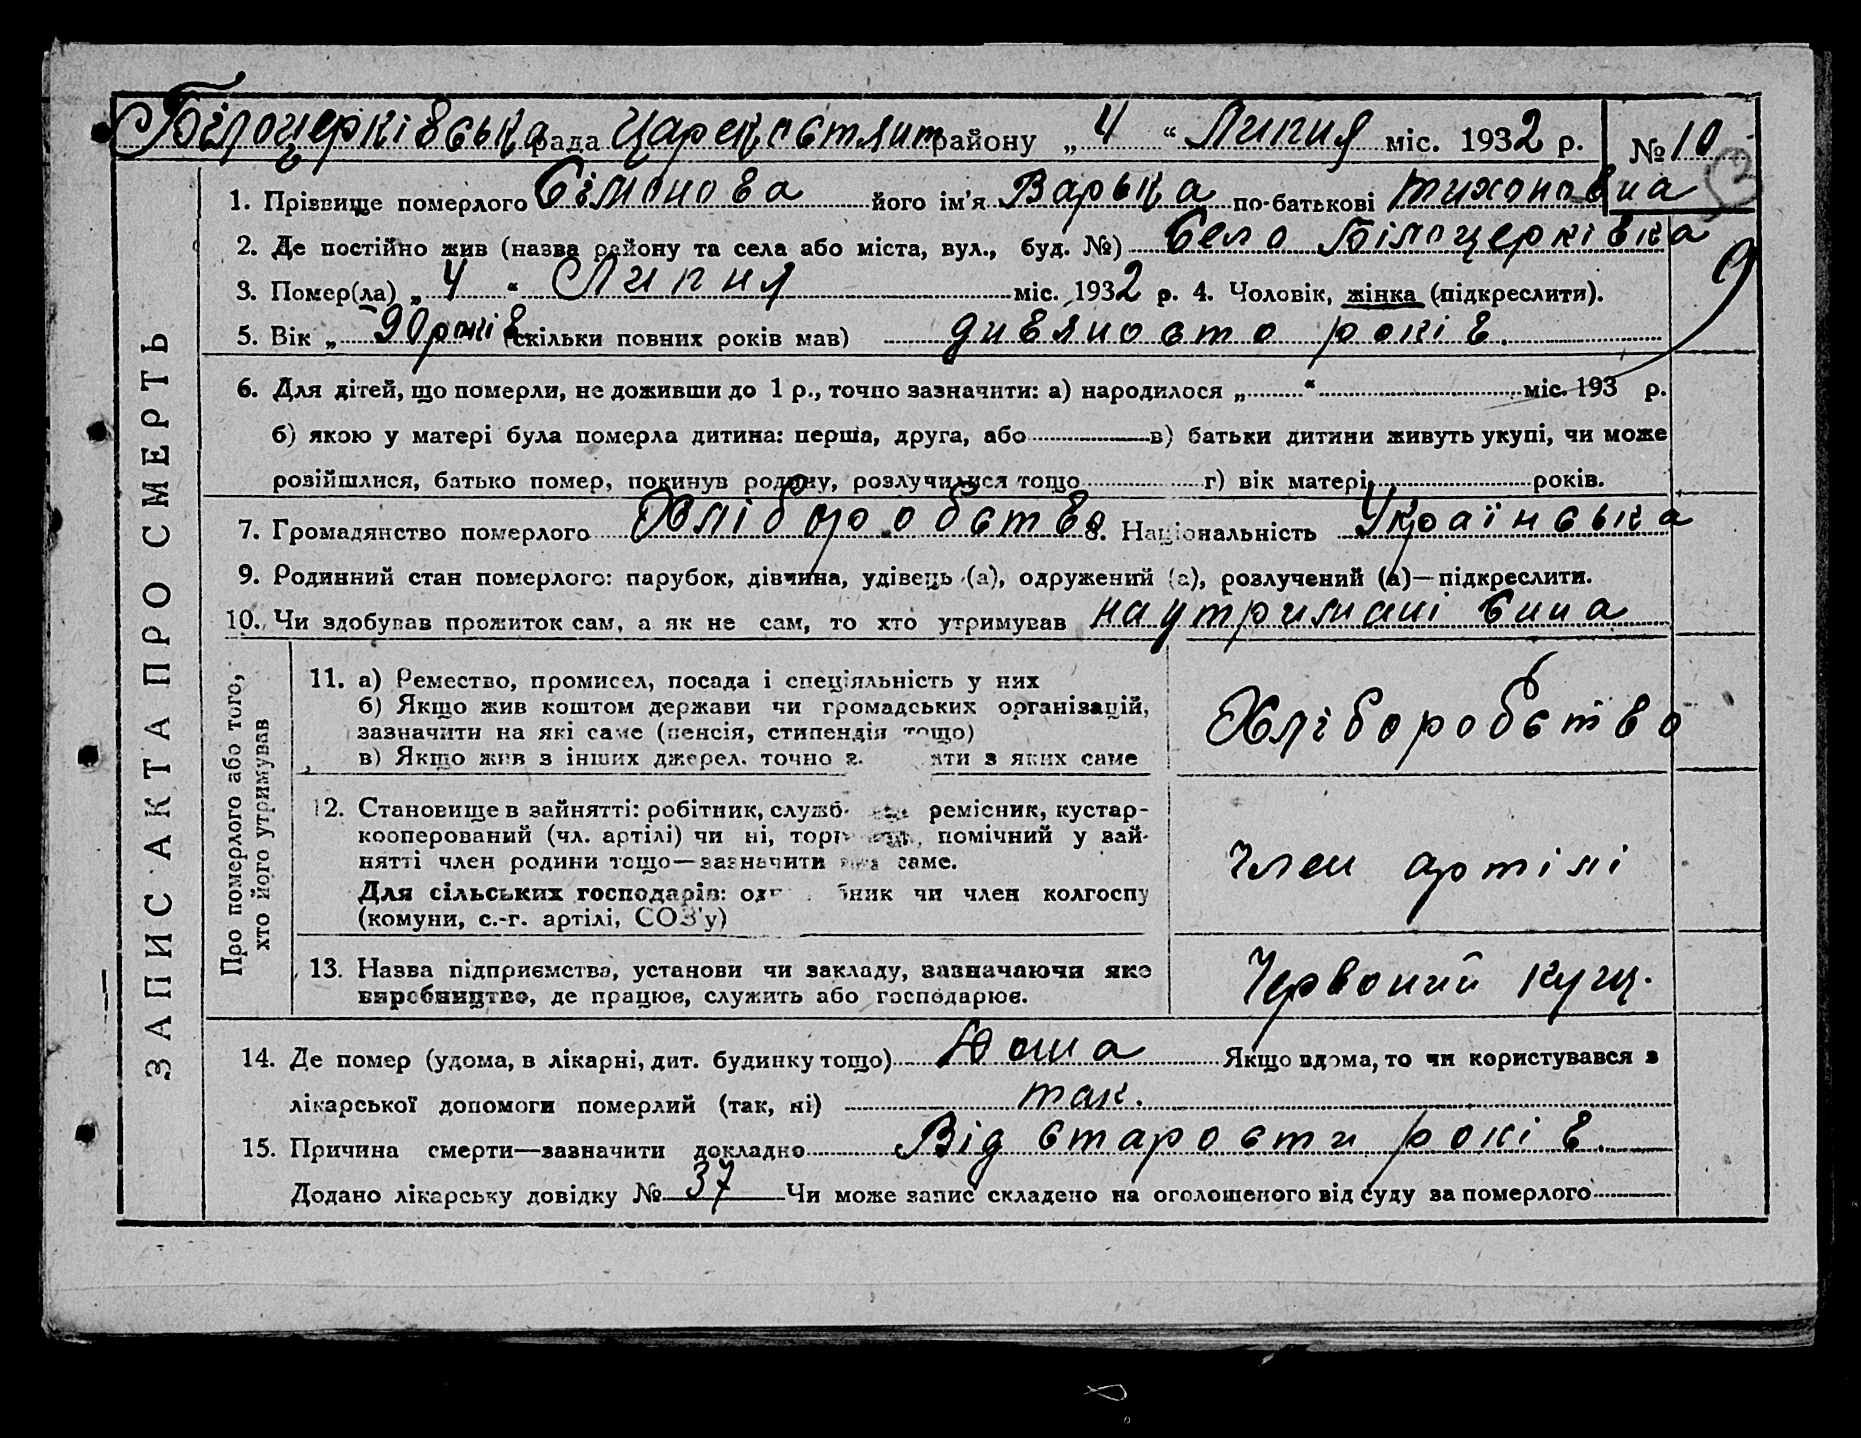 Білоцерківська рада Царекостянт району „ 4 “ Липня міс. 1932 р. № 10
1. Прізвище померлого Сімонова його ім'я Варька по-батькові Тихоновна
2. Де постійно жив (назва району та села або міста, вул., буд. №) Село Білоцерківка
3. Помер(ла) „ 4 “ Липня міс. 1932 р. 4. Чоловік, жінка (підкреслити).
9
5. Вік „ 90 років (скільки повних років мав) дивяносто років.
6. Для дітей, що померли, не доживши до 1 р., точно зазначити: а) народилося „ “ міс. 193 р.
б) якою у матері була померла дитина: перша, друга, або в) батьки дитини живуть укупі, чи може
розійшлися, батько помер, покинув родину, розлучилися тощо г) вік матері років.
7. Громадянство померлого Хліборобство 8. Національність Українська
9. Родинний стан померлого: парубок, дівчина, удівець (а), одружений (а), розлучений (а)—підкреслити.
10. Чи здобував прожиток сам, а як не сам, то хто утримував на утримані сина
ЗАПИС АКТА ПРО СМЕРТЬ
Про померлого або того,
хто його утримував
11. а) Ремество, промисел, посада і спеціяльність у них
б) Якщо жив коштом держави чи громадських організацій,
зазначити на які саме (пенсія, стипендія тощо)
в) Якщо жив з інших джерел, точно з яких саме
Хліборобство
12. Становище в зайнятті: робітник, служб ремісник, кустар-
кооперований (чл. артілі) чи ні, помічний у зай-
нятті член родини тощо—зазначити саме.
Для сільських господарів: чи член колгоспу
(комуни, с.-г. артілі, СОЗ'у)
Член артілі
13. Назва підприємства, установи чи закладу, зазначаючи яке
виробництво, де працює, служить або господарює.
Червоний кущ.
14. Де помер (удома, в лікарні, дит. будинку тощо) Дома Якщо вдома, то чи користувався з
лікарської допомоги померлий (так, ні) так.
15. Причина смерти—зазначити докладно Від старости років.
Додано лікарську довідку № 37 Чи може запис складено на оголошеного від суду за померлого